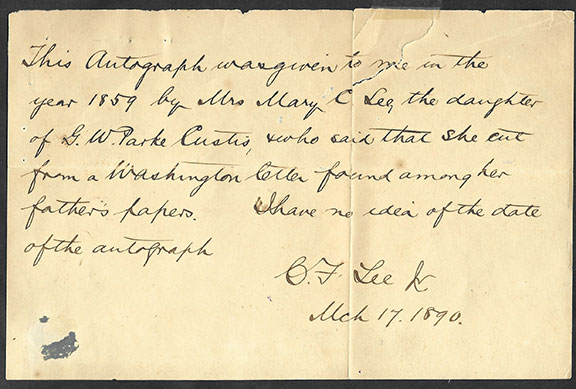 This Autograph was given to me in the
year 1859 by Mrs Mary C Lee, the daughter
of G. W. Parke Custis, & who said that she cut
from a Washington letter found among her
father's papers. I have no idea of the date
of the autograph
C. F. Lee Jr
Mch 17. 1890.